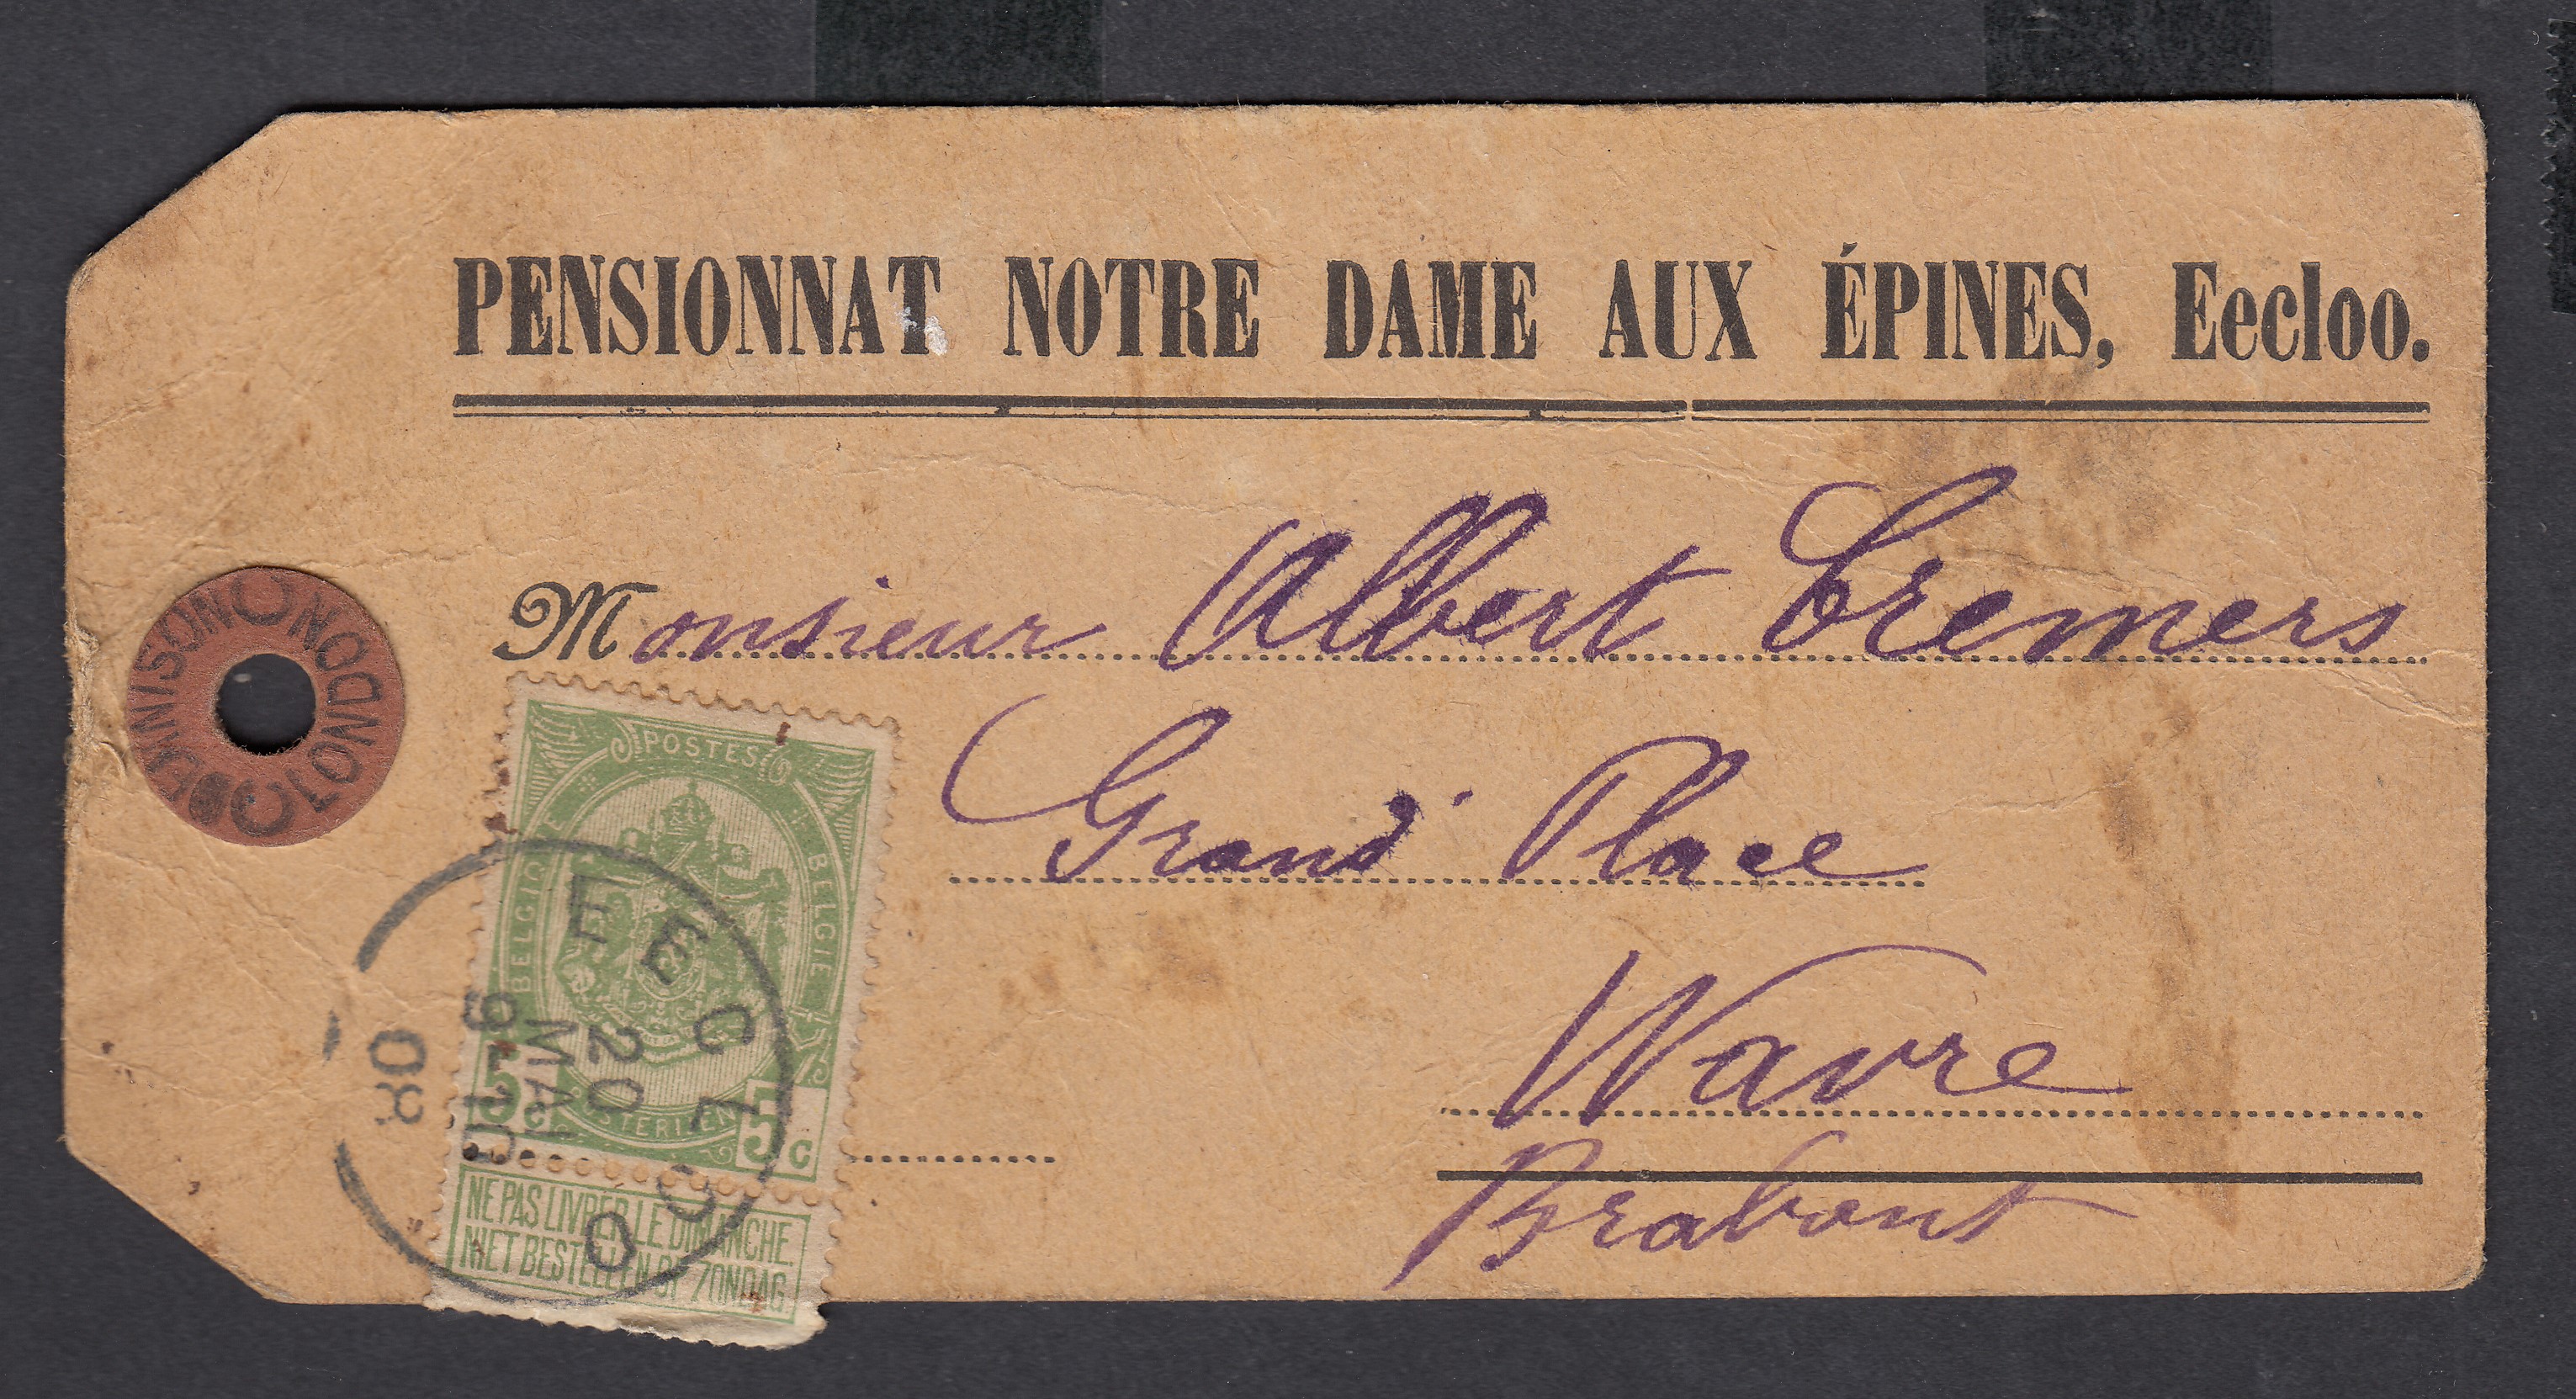 PENSIONNAT NOTRE DAME AUX ÉPINES, Eecloo.
Monsieur Albert Cremers
Grand' Place
Wavre
Brabant
DENNISON LONDON
POSTES
BELGIQUE
BELGIE
5 C
5 C
POSTERIJEN
NE PAS LIVRER LE DIMANCHE.
NIET BESTELLEN OP ZONDAG.
EECLOO
20
MAI
9-10
08